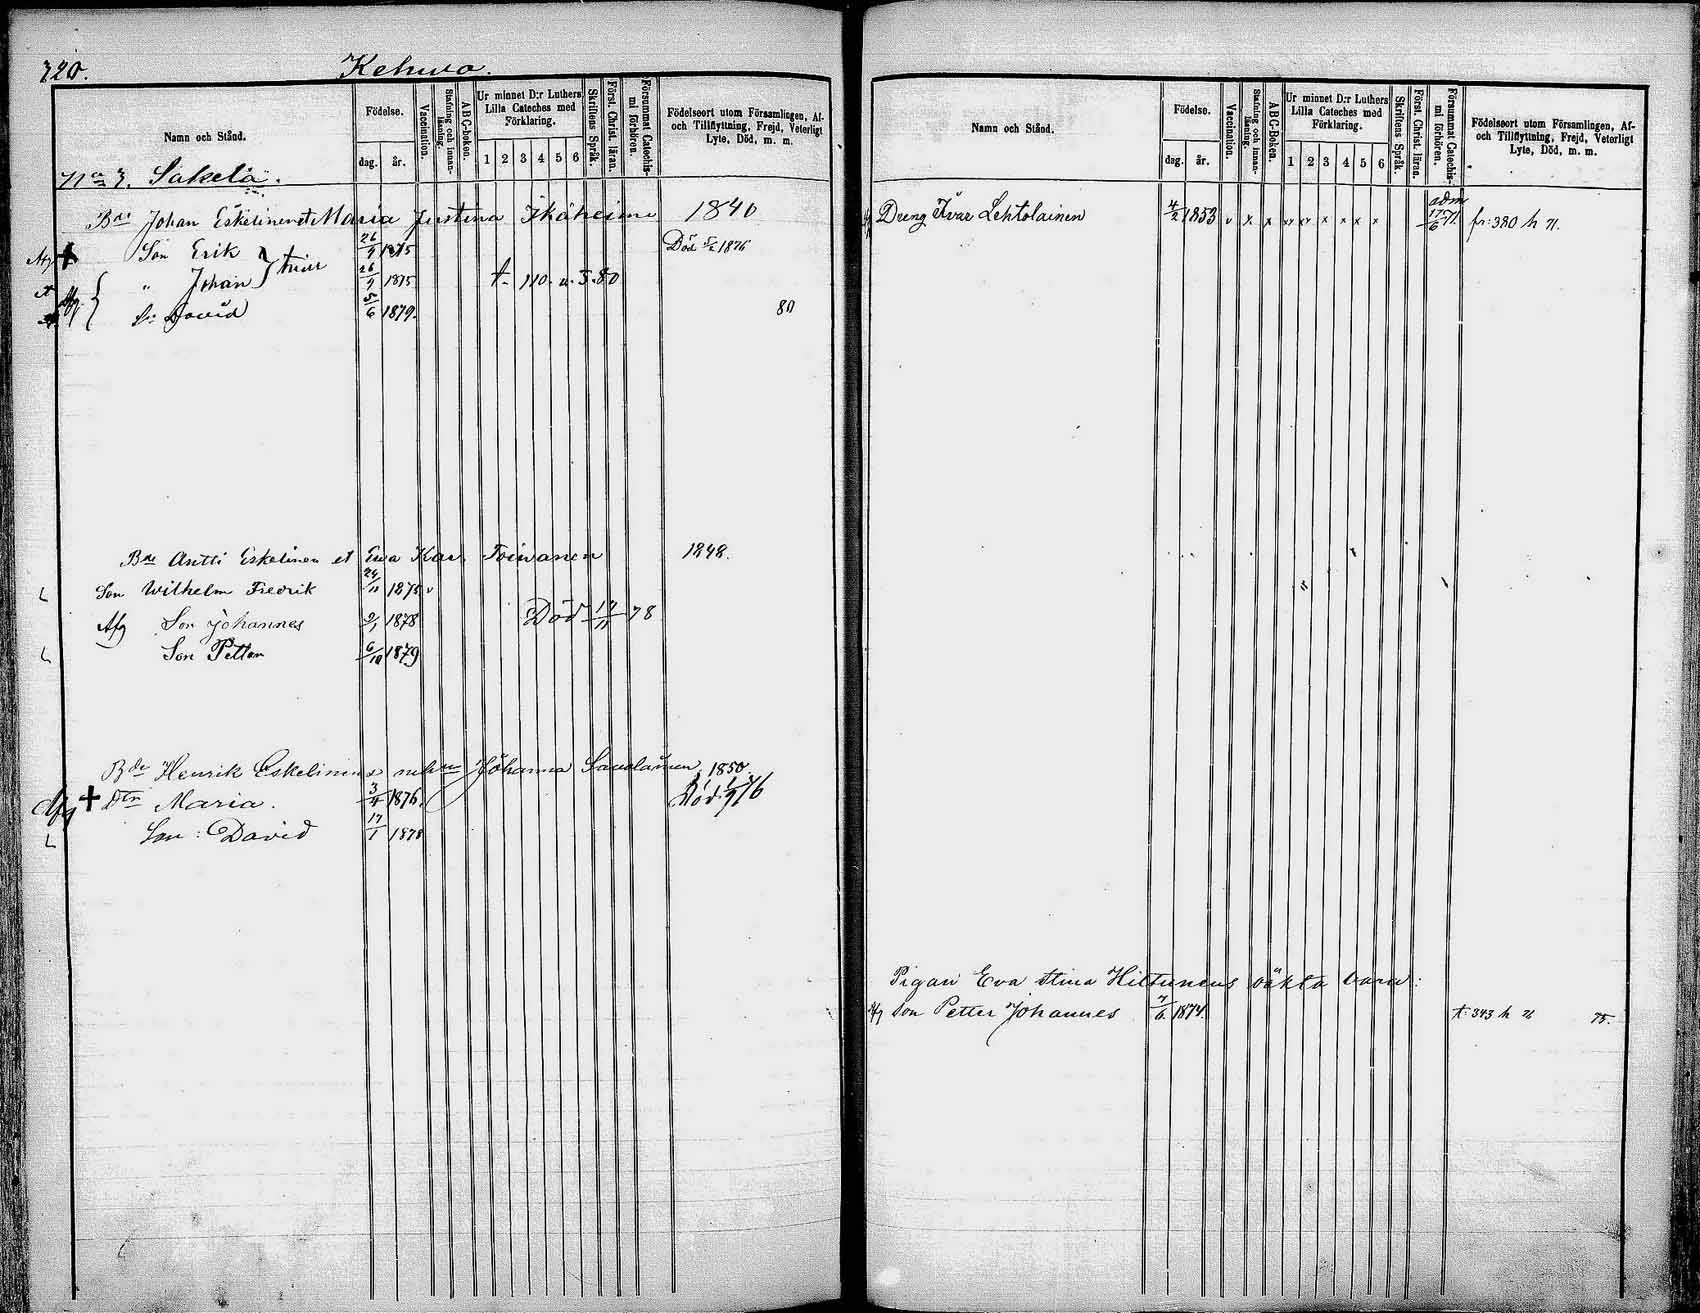 320. Kehvo.
Namn och Stånd.
Födelse.
dag. år.
Vaccination.
Stafning och innan-läsning.
ABC-boken.
Ur minnet D:r Luthers Lilla Cateches med Förklaring.
1 2 3 4 5 6
Skriftens Språk.
Först. Christ. läran.
Försummat Catechis-mi förhören.
Födelseort utom Församlingen, Af- och Tillflyttning, Frejd, Veterligt Lyte, Död, m. m.
No 3. Sakela.
Bde Johan Eskelinen et Maria Justina Ikäheimo 1840
Afg + Son Erik 26/9 1875 Död 5/2 1876
" Johan 26/9 1875 t. 110. u. 5. 80
S: David 5/6 1879. 80
Bde Antti Eskelinen et Eva Kar. Toivanen 1848.
Son Wilhelm Fredrik 24/11 1875 v
Afg Son Johannes 9/1 1878 Död 17/11 78
Son Petter 6/10 1879
Bde Henrik Eskelinens Johanna Savolainen, 1850.
Afg + Dtr Maria. 3/4 1876. Död 76
Son: David 17/1 1878
Namn och Stånd.
Födelse.
dag. år.
Vaccination.
Stafning och innan-läsning.
ABC-Boken.
Ur minnet D:r Luthers Lilla Cateches med Förklaring.
1 2 3 4 5 6
Skriftens Språk.
Först. Christ. läran.
Försummat Catechis-mi förhören.
Födelseort utom Församlingen, Af- och Tillflyttning, Frejd, Veterligt Lyte, Död, m. m.
Dreng Ivar Lehtolainen 4/2 1853 v x x x x x x x x adm 17/6 71. fr: 380 h 71.
Pigan Eva Stina Hiltunens oäkta barn:
Afg Son Petter Johannes 7/6 1874. t. 343 h 75.